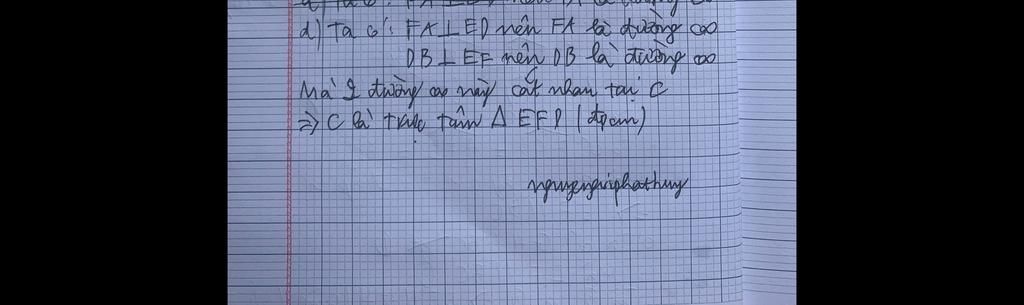 d) Ta có: FA ⊥ ED nên FA là đường cao
DB ⊥ EF nên DB là đường cao
Mà 2 đường cao này cắt nhau tại C
=> C là trực tâm Δ EFD (đpcm)